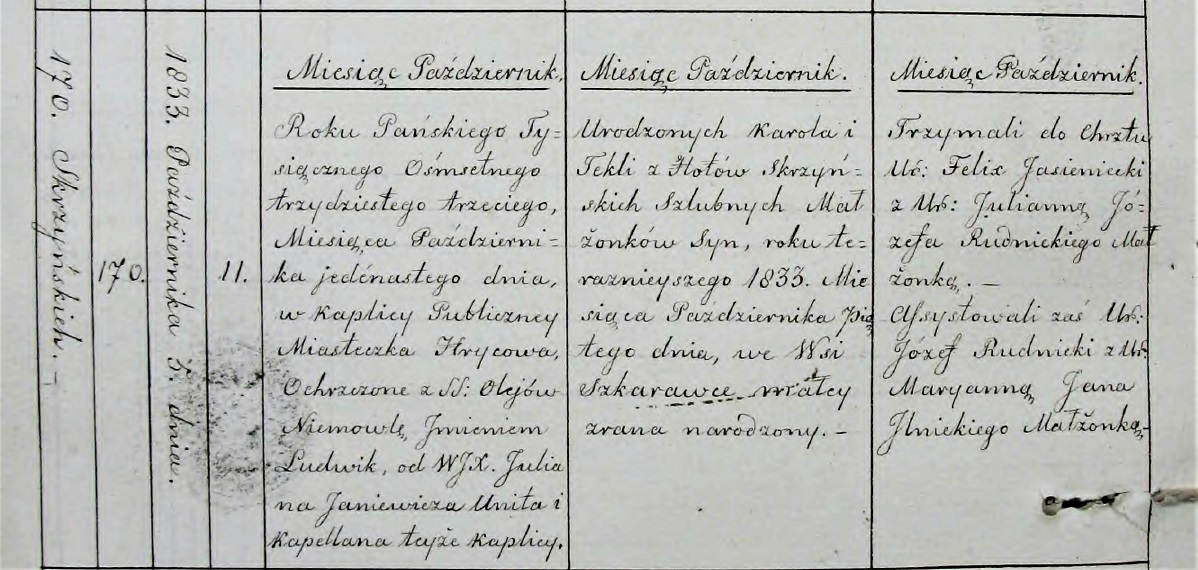 170. Skrzyńskich. –
170.
1833. Października 5. dnia.
11.
Miesiąc Październik.
Roku Pańskiego Ty=
siącznego Ośmsetnego
trzydziestego trzeciego,
Miesiąca Październi=
ka jedenastego dnia,
w Kaplicy Publiczney
Miasteczka Hrycowa,
Ochrzczone z SS: Olejów
Niemowlę Jmieniem
Ludwik, od WJX. Julia
na Janiewicza Unita i
Kapellana tejże Kaplicy.
Miesiąc Październik.
Urodzonych Karola i
Tekli z Hołów Skrzyń=
skich Szlubnych Mał
żonków Syn, roku te=
raznieyszego 1833. Mie
siąca Października Pią
tego dnia, we Wsi
Szkarawce małey
zrana narodzony. –
Miesiąc Październik.
Trzymali do Chrztu
Ur: Felix Jasieniecki
z Ur: Julianną Jó=
zefa Rudnickiego Mał
żonką. –
Assystowali zaś Ur:
Józef Rudnicki z Ur:
Maryanną Jana
Ilnickiego Małżonką –